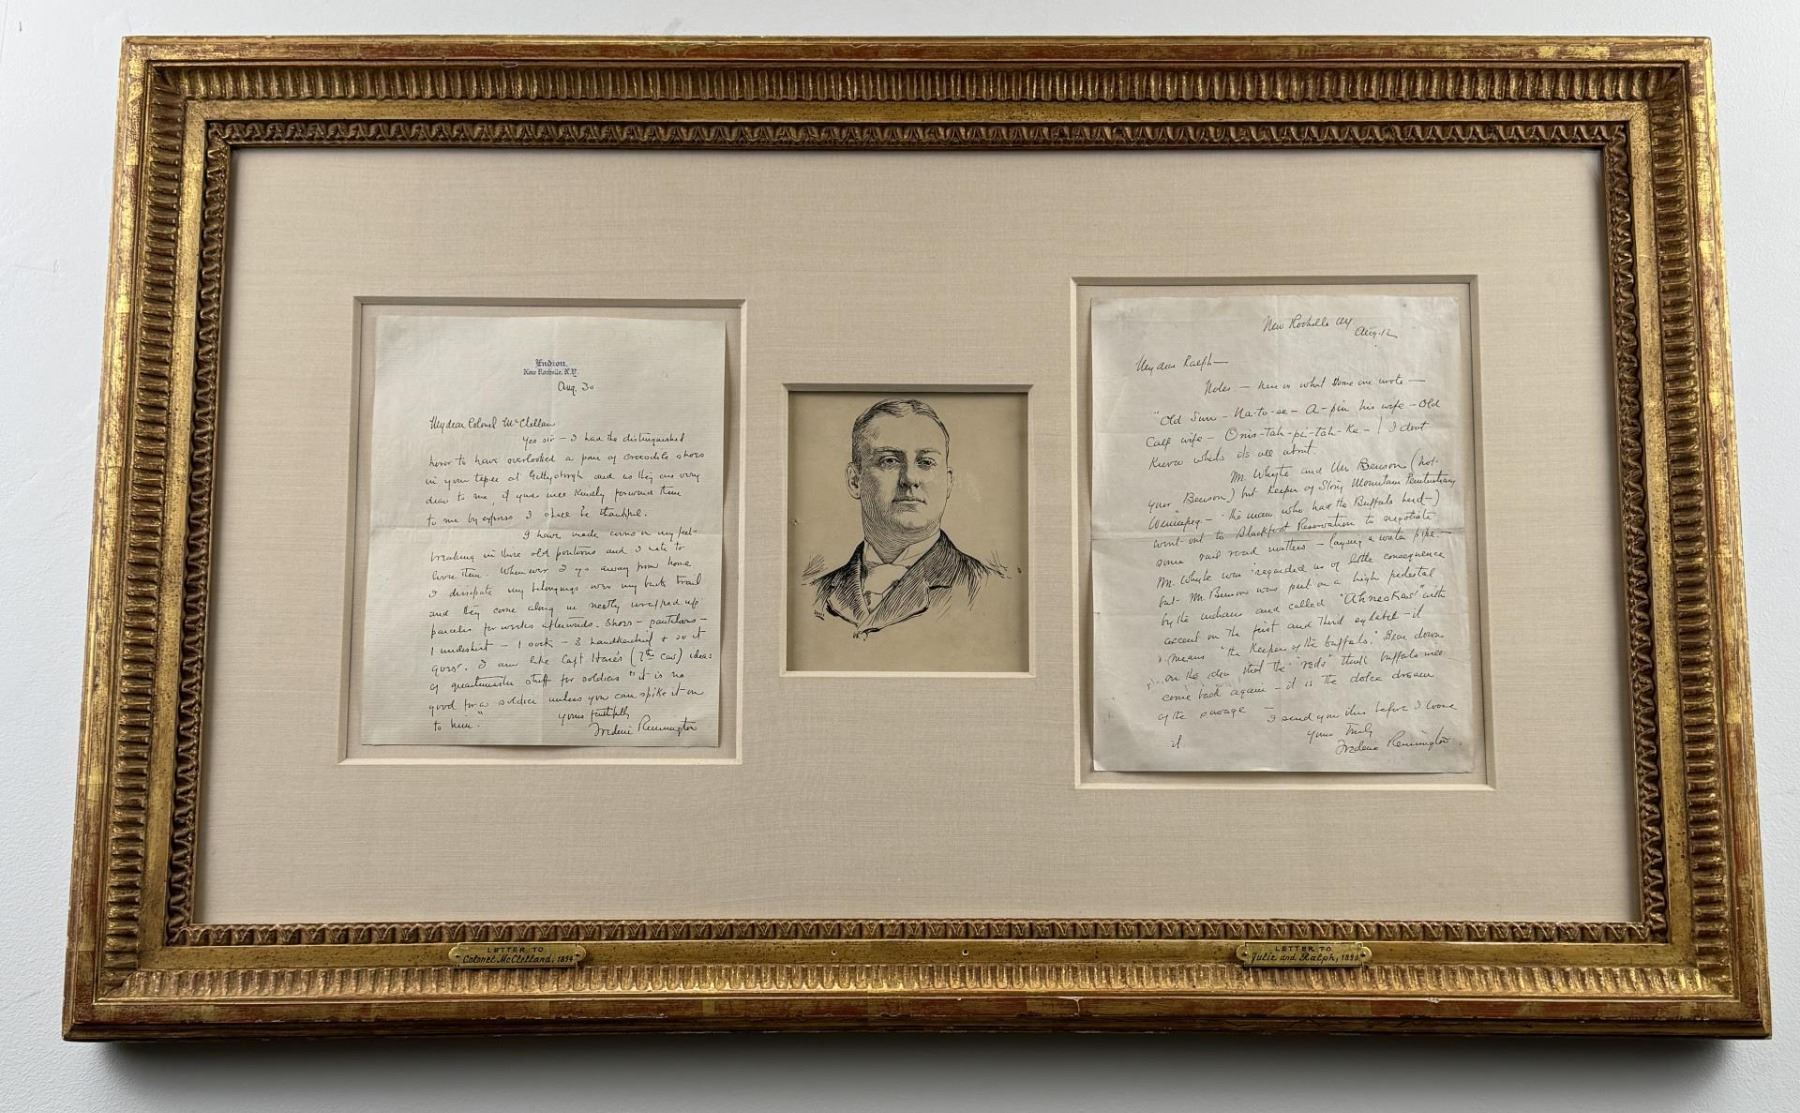 Endion,
New Rochelle, N.Y.
Aug. 30
My dear Colonel McClellan
Yes sir – I had the distinguished
honor to have overlooked a pair of crocodile shoes
in your tepee at Gettysburgh and as they are very
dear to me, if you will kindly forward them
to me by express I shall be thankful.
I have made corns on my feet
breaking in three old pontoons and I hate to
loose them. Whenever I go away from home
I dissipate my belongings over my back trail
and they come along in neatly wrapped up
parcels for weeks afterwards. Shoes – pantaloons –
1 undershirt – 1 sock – 3 handkerchief & so it
goes. I am like Capt Hare's (7th Cav) ideas
of quartermaster stuff for soldiers "it is no
good for a soldier unless you can spike it on
to him."
Yours faithfully
Frederic Remington
New Rochelle NY
Aug. 12
My dear Ralph –
Notes – here is what some one wrote –
"Old Sun – Na-to-se – A-pin his wife – Old
Calf wife – Onis-tah-pi-tah-Ke – ! I dont
Know what its all about.
Mr. Whyte and Mr Benson (not
your Benson) but Keeper of Stony Mountain Penitentiary
Winnipeg – "the man who had the Buffalo herd –)
went out to Blackfoot Reservation to negotiate
some rail road matters – laying a water pipe –
Mr. Whyte was regarded as of little consequence
but Mr Benson was put on a high pedestal
by the indians and called "Ahneskas" with
accent on the first and third sylabel – it
means "the Keeper of the buffalo." Bear down
on the idea that the "reds" think buffalo will
come back again – it is the dolce dream
of the savage – I send you this before I loose
it
Yours truly
Frederic Remington
LETTER TO
Colonel McClelland, 1894
LETTER TO
Julie and Ralph,